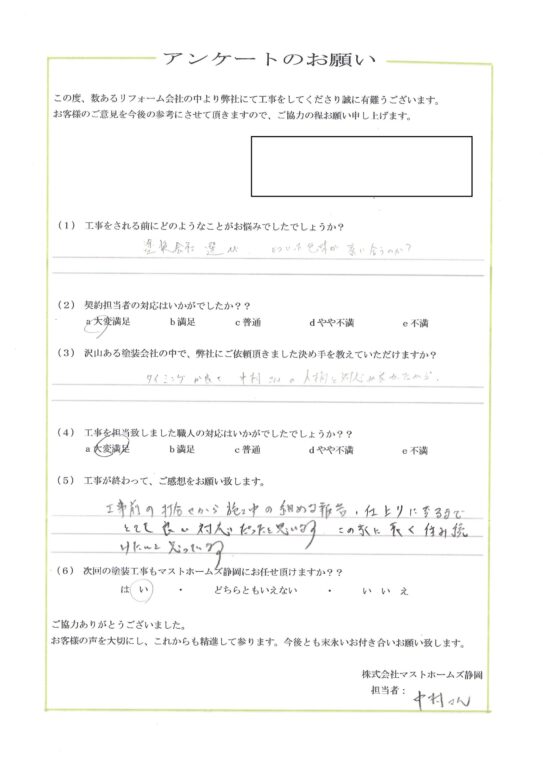 アンケートのお願い
この度、数あるリフォーム会社の中より弊社にて工事をしてくださり誠に有難うございます。
お客様のご意見を今後の参考にさせて頂きますので、ご協力の程お願い申し上げます。
(1) 工事をされる前にどのようなことがお悩みでしたでしょうか？
塗装会社選び
(2) 契約担当者の対応はいかがでしたか？？
a 大変満足 b 満足 c 普通 d やや不満 e 不満
(3) 沢山ある塗装会社の中で、弊社にご依頼頂きました決め手を教えていただけますか？
タイミングが良く 中村さんの人柄と対応が良かったから。
(4) 工事を担当致しました職人の対応はいかがでしたでしょうか？？
a 大変満足 b 満足 c 普通 d やや不満 e 不満
(5) 工事が終わって、ご感想をお願い致します。
工事前の打合せから施工中の細める報告、仕上りに至るまで
とても良い対応だったと思います。この家に長く住み続
けたいと思っています
(6) 次回の塗装工事もマストホームズ静岡にお任せ頂けますか？？
はい ・ どちらともいえない ・ いいえ
ご協力ありがとうございました。
お客様の声を大切にし、これからも精進して参ります。今後とも末永いお付き合いお願い致します。
株式会社マストホームズ静岡
担当者： 中村さん